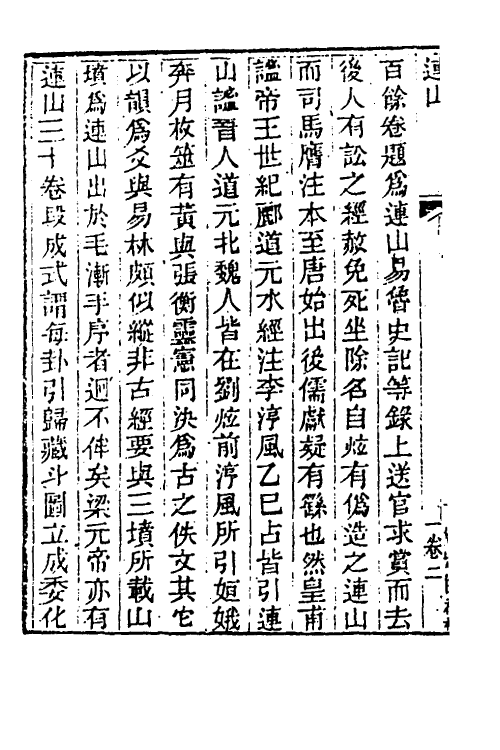 連山
百餘卷題爲連山易魯史記等錄上送官求賞而去
後人有訟之經赦免死坐除名自炫有僞造之連山
而司馬膺注本至唐始出後儒獻疑有繇也然皇甫
謐帝王世紀酈道元水經注李淳風乙巳占皆引連
山謐晉人道元北魏人皆在劉炫前淳風所引姮娥
奔月枚筮有黃與張衡靈憲同決爲古之佚文其它
以韻爲爻與易林頗似縱非古經要與三墳所載山
墳爲連山出於毛漸手序者迥不侔矣梁元帝亦有
連山三十卷段成式謂每卦引歸藏斗圖立成委化
卷二